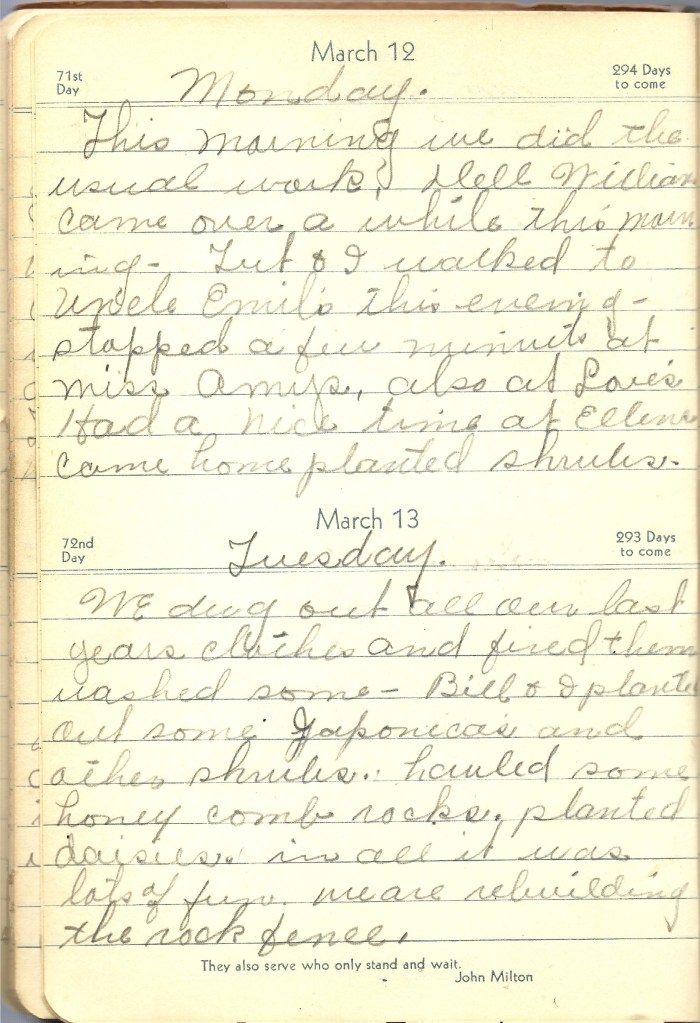 March 12
71st Day
294 Days to come
Monday.
This morning we did the
usual work, Dell William
came over a while this morn
ing- Tut & I walked to
Uncle Emil's this evening-
stopped a few minuits at
miss Amys, also at Love's
Had a nice time at Ellens
came home planted shrubs.
March 13
72nd Day
293 Days to come
Tuesday.
We dug out all our last
years clothes and fixed them
washed some- Bill & I plante
out some Japonicas and
other shrubs. hauled some
honey comb rocks, planted
daisies. in all it was
lots of fun. we are rebuilding
the rock fence.
They also serve who only stand and wait.
John Milton